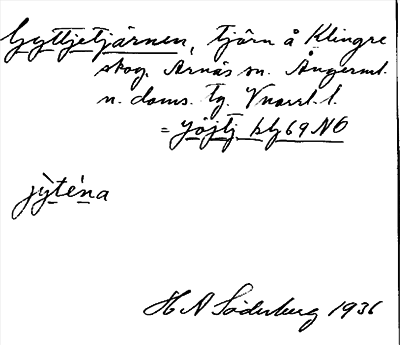 Gyttjetjärnen, tjärn å Klingre
skog. Arnäs sn. Ångerml.
n. doms. tg. Vnorrl. l.
= yöjtj blg 69 NÖ
jỳténa
H A Söderberg 1936